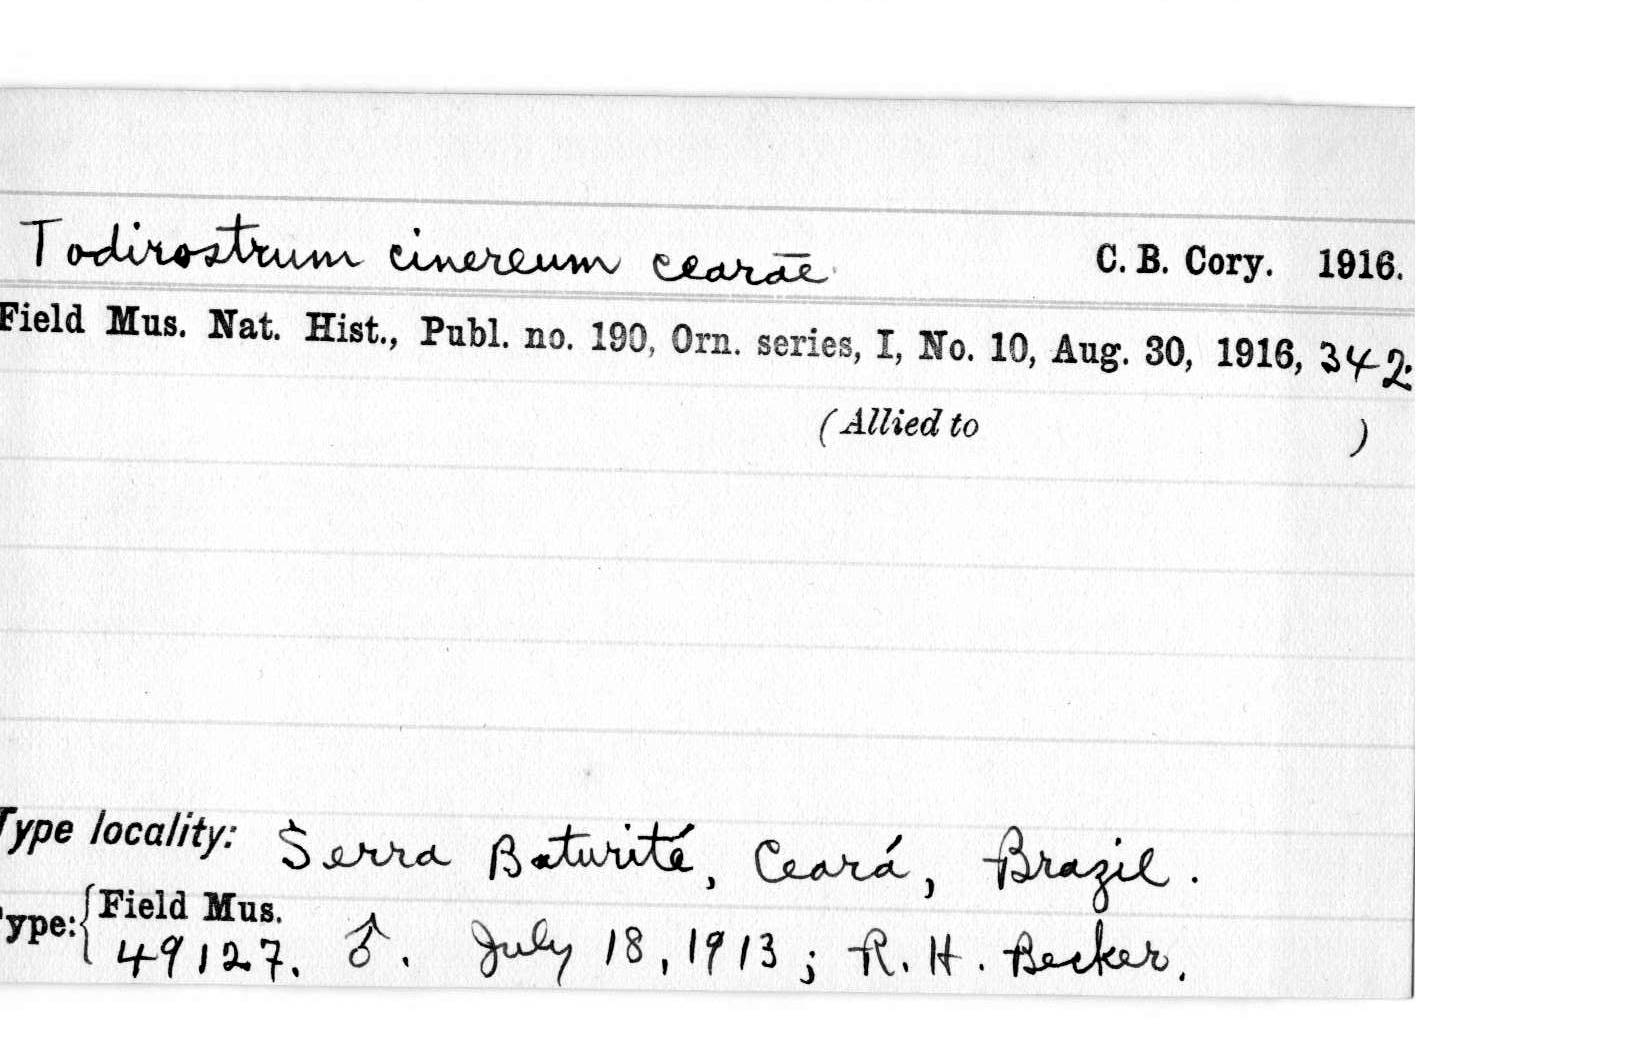 Todirostrum cinereum cearāe C. B. Cory. 1916.
Field Mus. Nat. Hist., Publ. no. 190, Orn. series, I, No. 10, Aug. 30, 1916, 342.
(Allied to )
Type locality: Serra Baturité, Ceará, Brazil.
Type: { Field Mus.
49127. ♂. July 18, 1913; R. H. Becker.